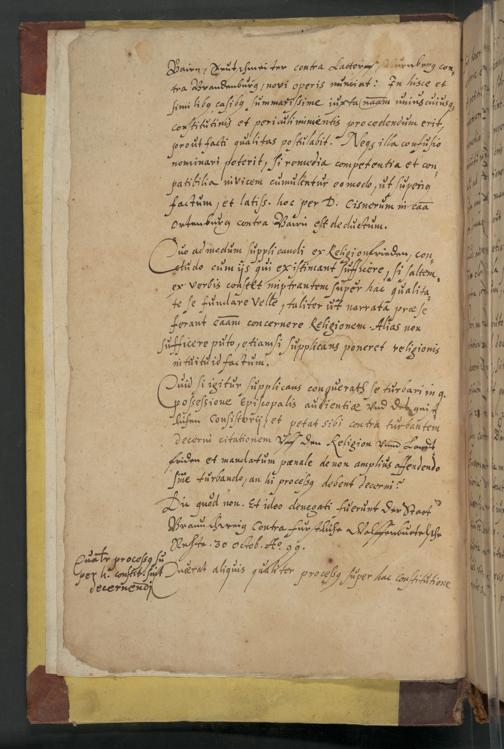 Bairn, Teutschmeister contra Lactorn, Nürnberg con=
tra Brandenburg, novi operis nunciat: In hisce et
similibq casibq summarissime iuxta naãm uniuscuiusq
constitutionis et periculi iminentis procedendum erit,
prout facti qualitas postulabit. Neq, illa confusio
nominari poterit, si remedia competentia et com=
patibilia invicem cumulentur eo modo, ut superiq
factum, et latiss. hoc per D. Cisnerum in cãã
Ortenburg contra Bairn est deductum.
Quo ad modum supplicandi ex Religionfrieden, con=
cludo cum ijs qui existimant sufficere, si saltem
ex verbis constet impetrantem super hac qualita=
te se fundare velle, taliter ut narrata præ se
ferant cããm concernere Religionem. Alias non
sufficere puto, etiamsi supplicans poneret religionis
intuitu id factum.
Quid si igitur supplicans conqueratr se turbari in q.
possessione Episcopalis audientiæ und des
Consistorij, et petat sibi contra turbantem
decerni citationem Uff den Religion und Landt
friden et mandatum pœnale de non amplius offendendo
sive turbando, an hi processq debent decerni?
Dic quod non. Et ideo denegati fuerunt der Statt
Braunschweig contra furstliche Wolffenbuttelsche
Rhäte. 30 Octob. Aº 99.
Qualr processq su
per h. constit. sint
decernendi
Quærat aliquis qualiter processq super hac constitutione